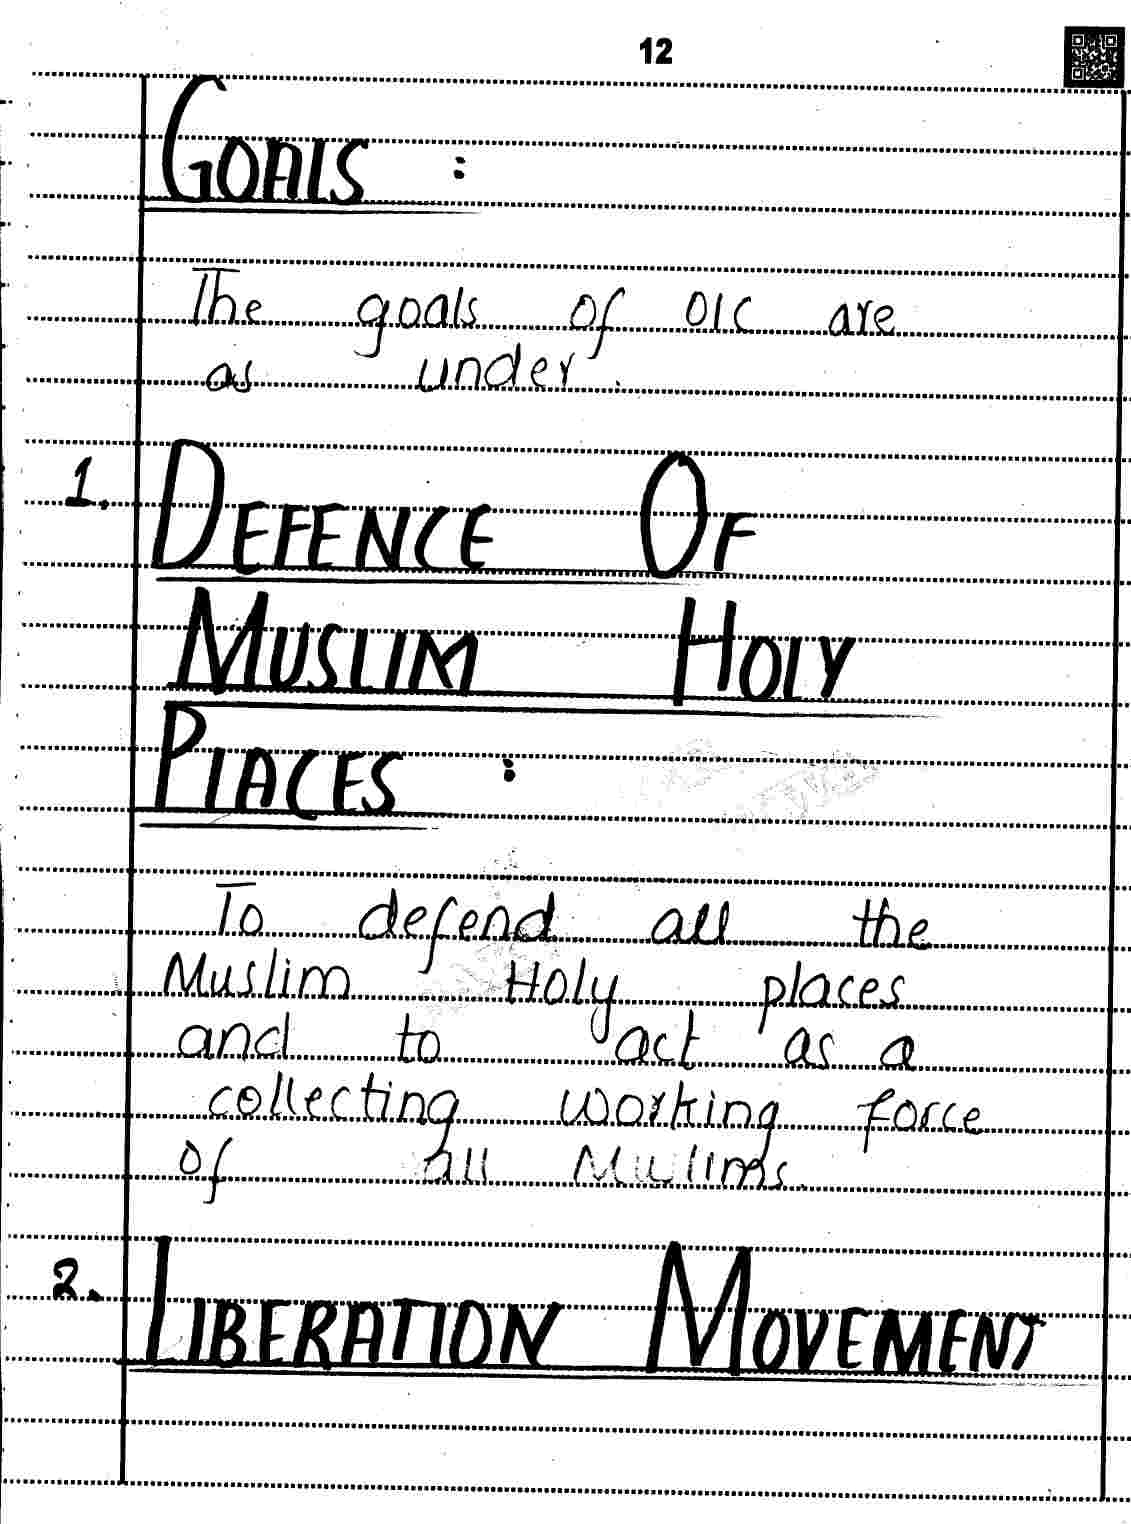 12
GOALS :
The goals of OIC are
as under.
1. DEFENCE OF
MUSLIM HOLY
PLACES :
To defend all the
Muslim Holy places
and to act as a
collecting working force
of all Muslims.
2. LIBERATION MOVEMENT